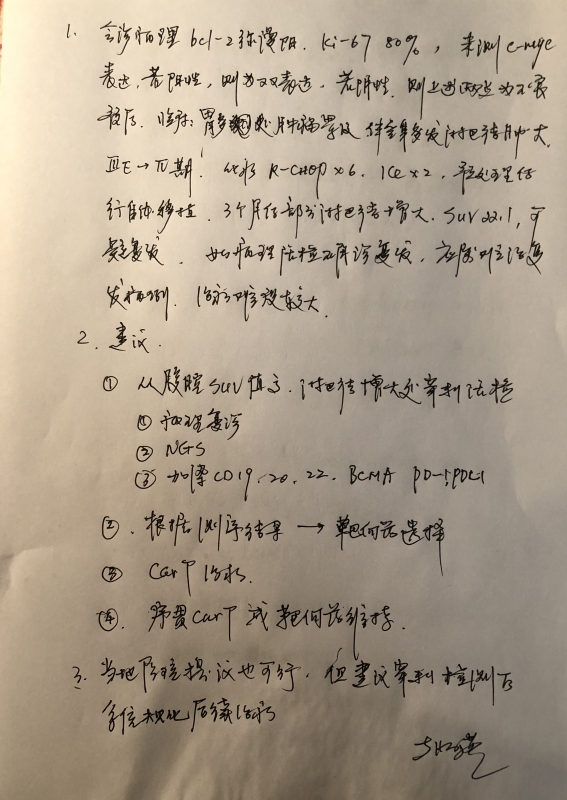 1. 会诊病理 bcl-2 弥漫阳. Ki-67 80%, 未测 c-myc
表达, 若阳性, 则为双表达, 若阴性. 则上述两点为不良
预后. 临床: 胃 肿瘤累及 伴全身多发淋巴结肿大.
ⅢE → Ⅳ期! 化疗 R-CHOP x 6. ICE x 2,
行自体移植. 3个月后部分淋巴结增大. SUV 22.1, 可
疑复发. 如病理活检证实诊复发, 应属难治复
发病例. 治疗难度较大.
2. 建议.
① 从腹腔 SUV 值高. 淋巴结增大处穿刺活检
① 病理复诊
② NGS
③ 加染 CD19. 20. 22. BCMA PD-1, PDL1
②. 根据测序结果 → 靶向药选择
③ CarT 治疗.
④. 序贯 CarT 或靶向药维持.
3. 当地医院提议也可行, 但建议穿刺检测后
个体化后续治疗